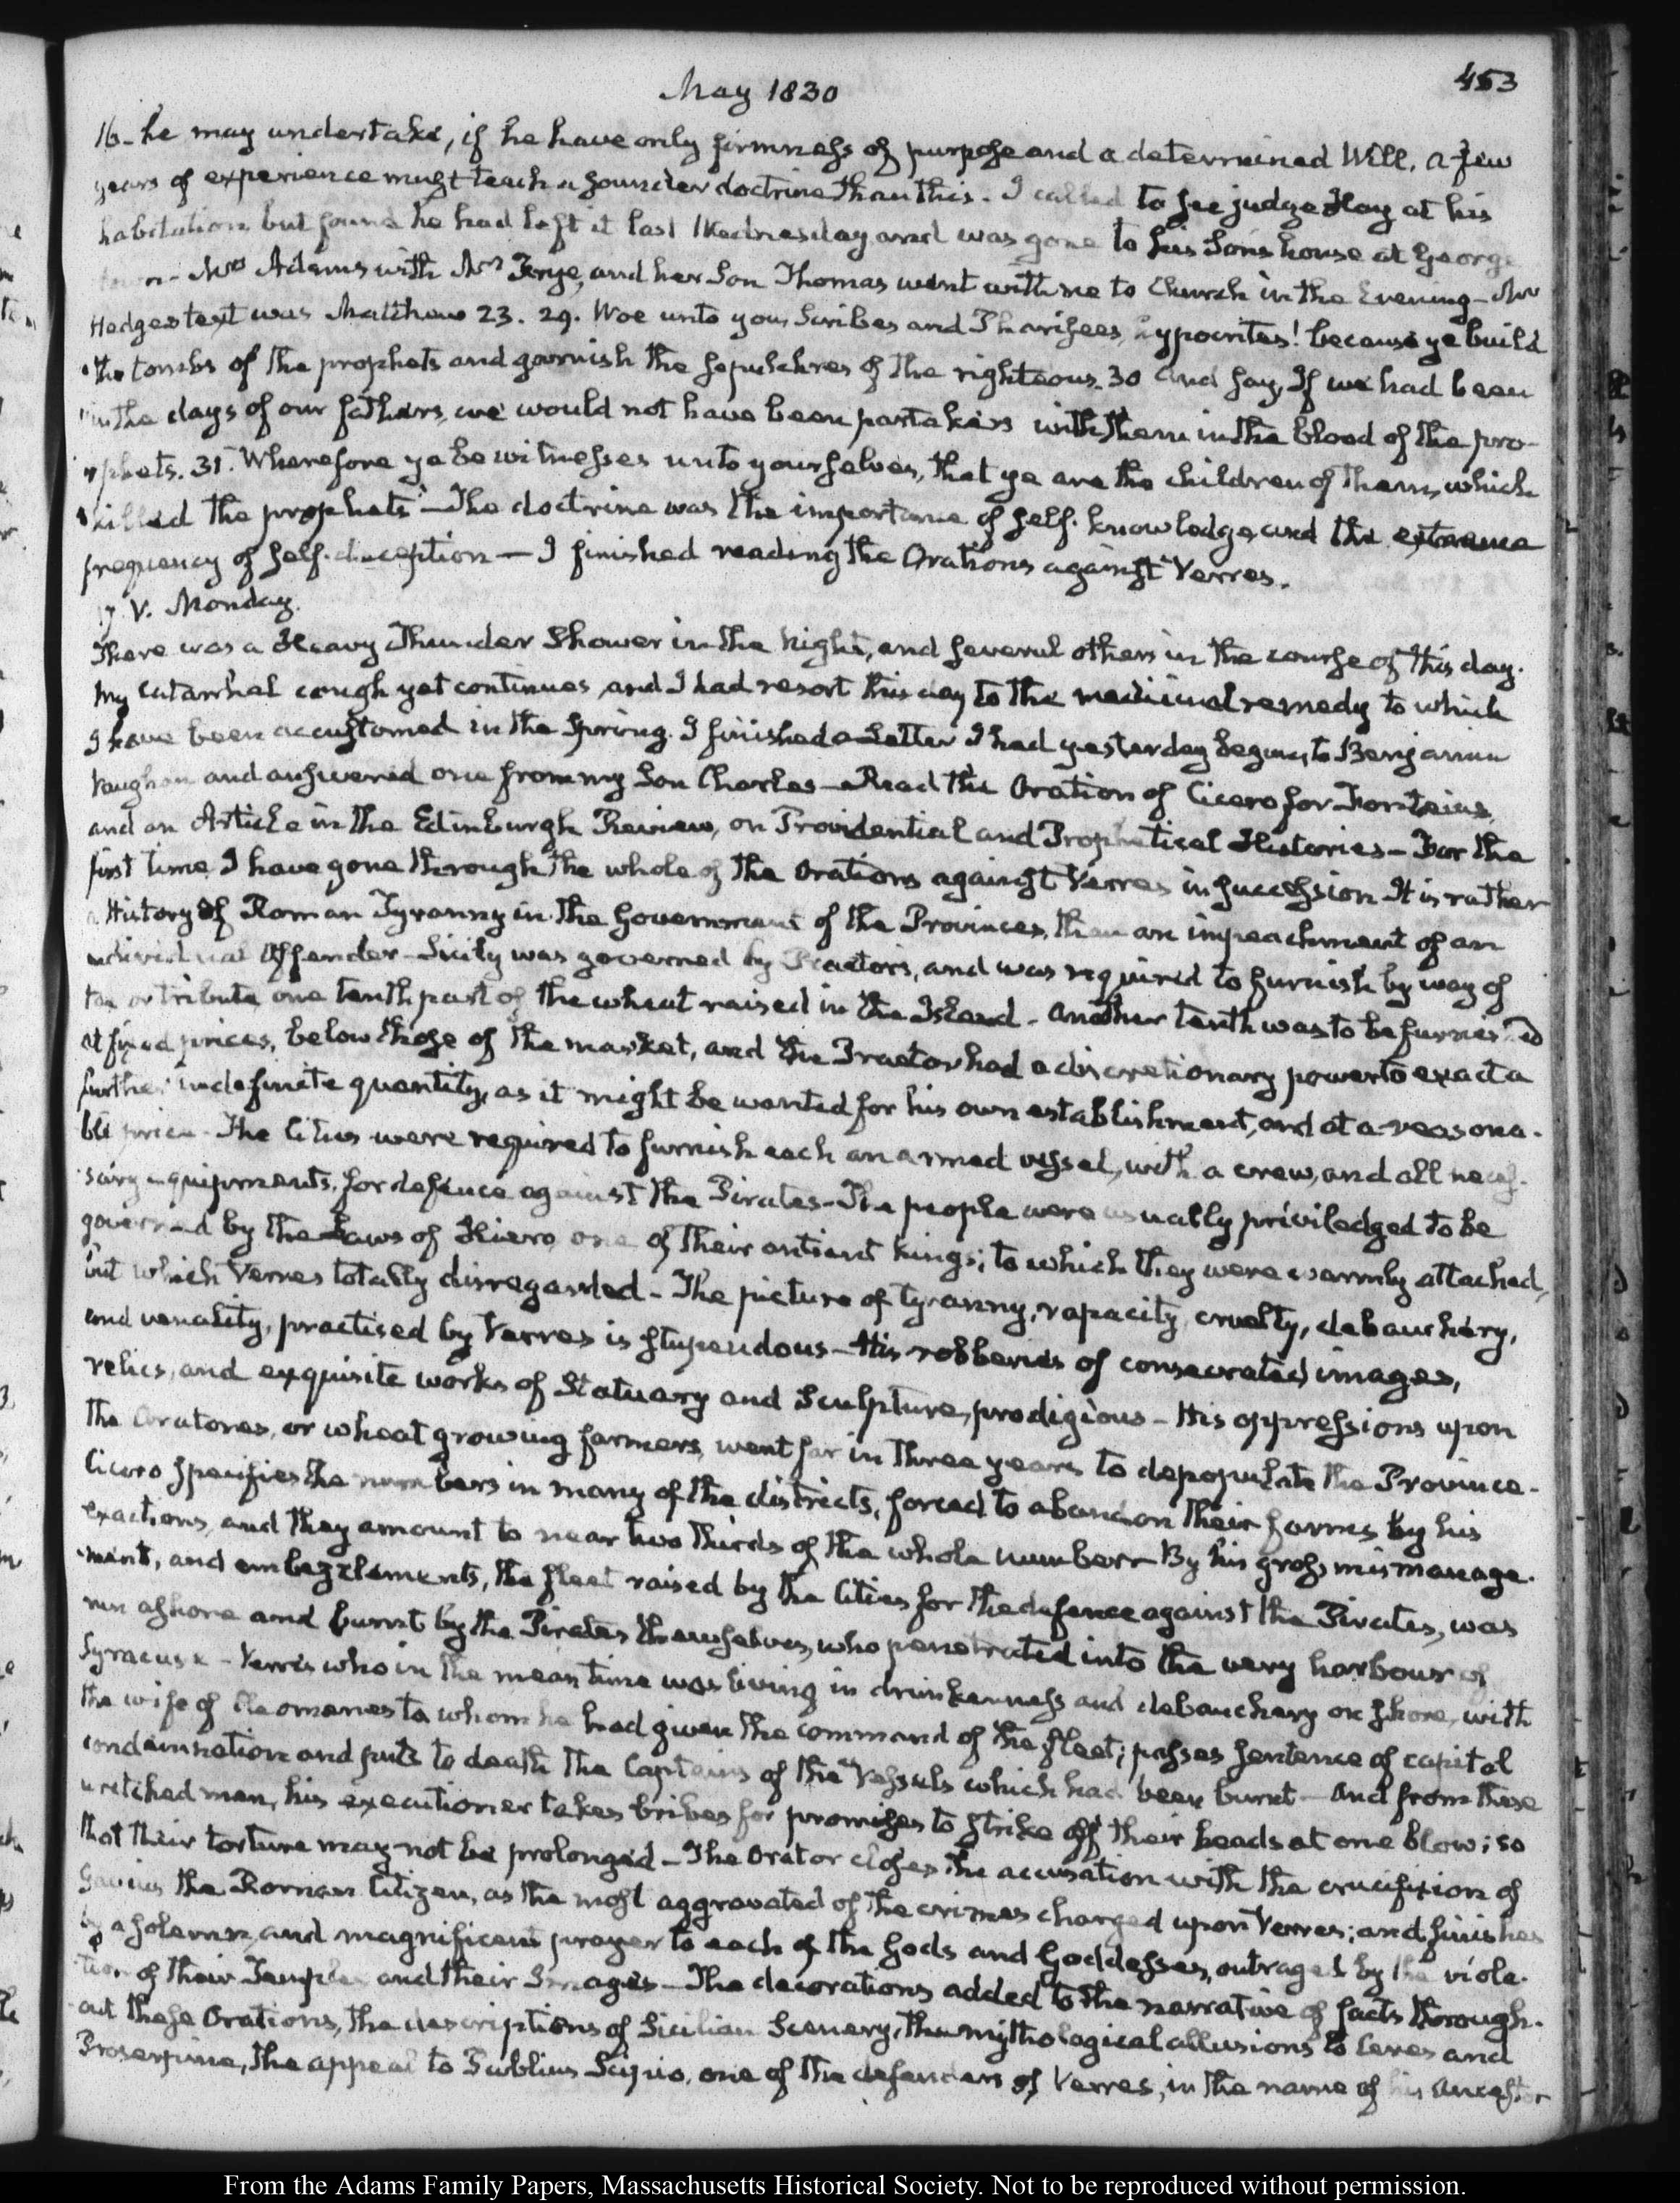 May 1830
453
16- he may undertake, if he have only firmness of purpose and a determined Will. a few
years of experience must teach a sounder doctrine than this. I called to see judge Hay at his
habitation but found he had left it last Wednesday and was gone to his Sons house at George
town - Mrs Adams with Mrs Frye, and her Son Thomas went with me to Church in the Evening - Mr
Hedges text was Matthew 23. 29. Woe unto you Scribes and Pharisees, hypocrites! because ye build
"the tombs of the prophets and garnish the sepulchres of the righteous. 30 And say, If we had been
"in the days of our fathers, we would not have been partakers with them in the blood of the pro-
"phets. 31. Wherefore ye be witnesses unto yourselves, that ye are the children of them, which
"killed the prophets" - The doctrine was the importance of self-knowledge and the extreme
frequency of self-deception — I finished reading the Orations against Verres.
17. V. Monday.
There was a Heavy Thunder Shower in the Night, and several others in the course of this day.
My Catarrhal cough yet continues, and I had resort this day to the medicinal remedy to which
I have been accustomed in the Spring. I finished a Letter I had yesterday begun, to Benjamin
Vaughan and answered one from my Son Charles - Read the Oration of Cicero for Fonteius,
and an Article in the Edinburgh Review, on Providential and Prophetical Histories - For the
first time I have gone through the whole of the Orations against Verres in succession. It is rather
a History of Roman Tyranny in the Government of the Provinces, than an impeachment of an
individual Offender - Sicily was governed by Praetors, and was required to furnish by way of
tax or tribute one tenth part of the wheat raised in the Island - Another tenth was to be furnished
at fixed prices, below those of the market, and the Praetor had a discretionary power to exact a
further indefinite quantity, as it might be wanted for his own establishment, and at a reasona-
ble price - The Cities were required to furnish each an armed vessel, with a crew, and all neces-
sary equipments, for defence against the Pirates - The people were usually priviledged to be
governed by the Laws of Hiero, one of their antient kings; to which they were warmly attached,
but which Verres totally disregarded - The picture of tyranny, rapacity, cruelty, debauchery,
and venality, practised by Verres is stupendous - His robberies of consecrated images,
relics, and exquisite works of Statuary and Sculpture, prodigious - His oppressions upon
the Aratores, or wheat growing farmers, went far in three years to depopulate the Province -
Cicero specifies the numbers in many of the districts, forced to abandon their farms by his
exactions, and they amount to near two thirds of the whole number - By his gross mismanage-
ment, and embezzlements, the fleet raised by the Cities for the defence against the Pirates, was
run ashore and burnt by the Pirates themselves, who penetrated into the very harbour of
Syracuse - Verres who in the mean time was living in drunkenness and debauchery on shore, with
the wife of Cleomenes to whom he had given the command of the fleet; passes sentence of capital
condemnation and puts to death the Captains of the Vessels which had been burnt - And from these
wretched men, his executioner takes bribes for promises to strike off their heads at one blow; so
that their torture may not be prolonged - The Orator closes the accusation with the crucifixion of
Gavius the Roman Citizen, as the most aggravated of the crimes charged upon Verres; and finishes
by a solemn, and magnificent prayer to each of the Gods and Goddesses, outraged by the viola-
tion of their Temples and their Images - The decorations added to the narrative of facts through-
out these Orations, the descriptions of Sicilian Scenery, the mythological allusions to Ceres and
Proserpine, the appeal to Publius Scipio, one of the defenders of Verres, in the name of his Ancestor
From the Adams Family Papers, Massachusetts Historical Society. Not to be reproduced without permission.